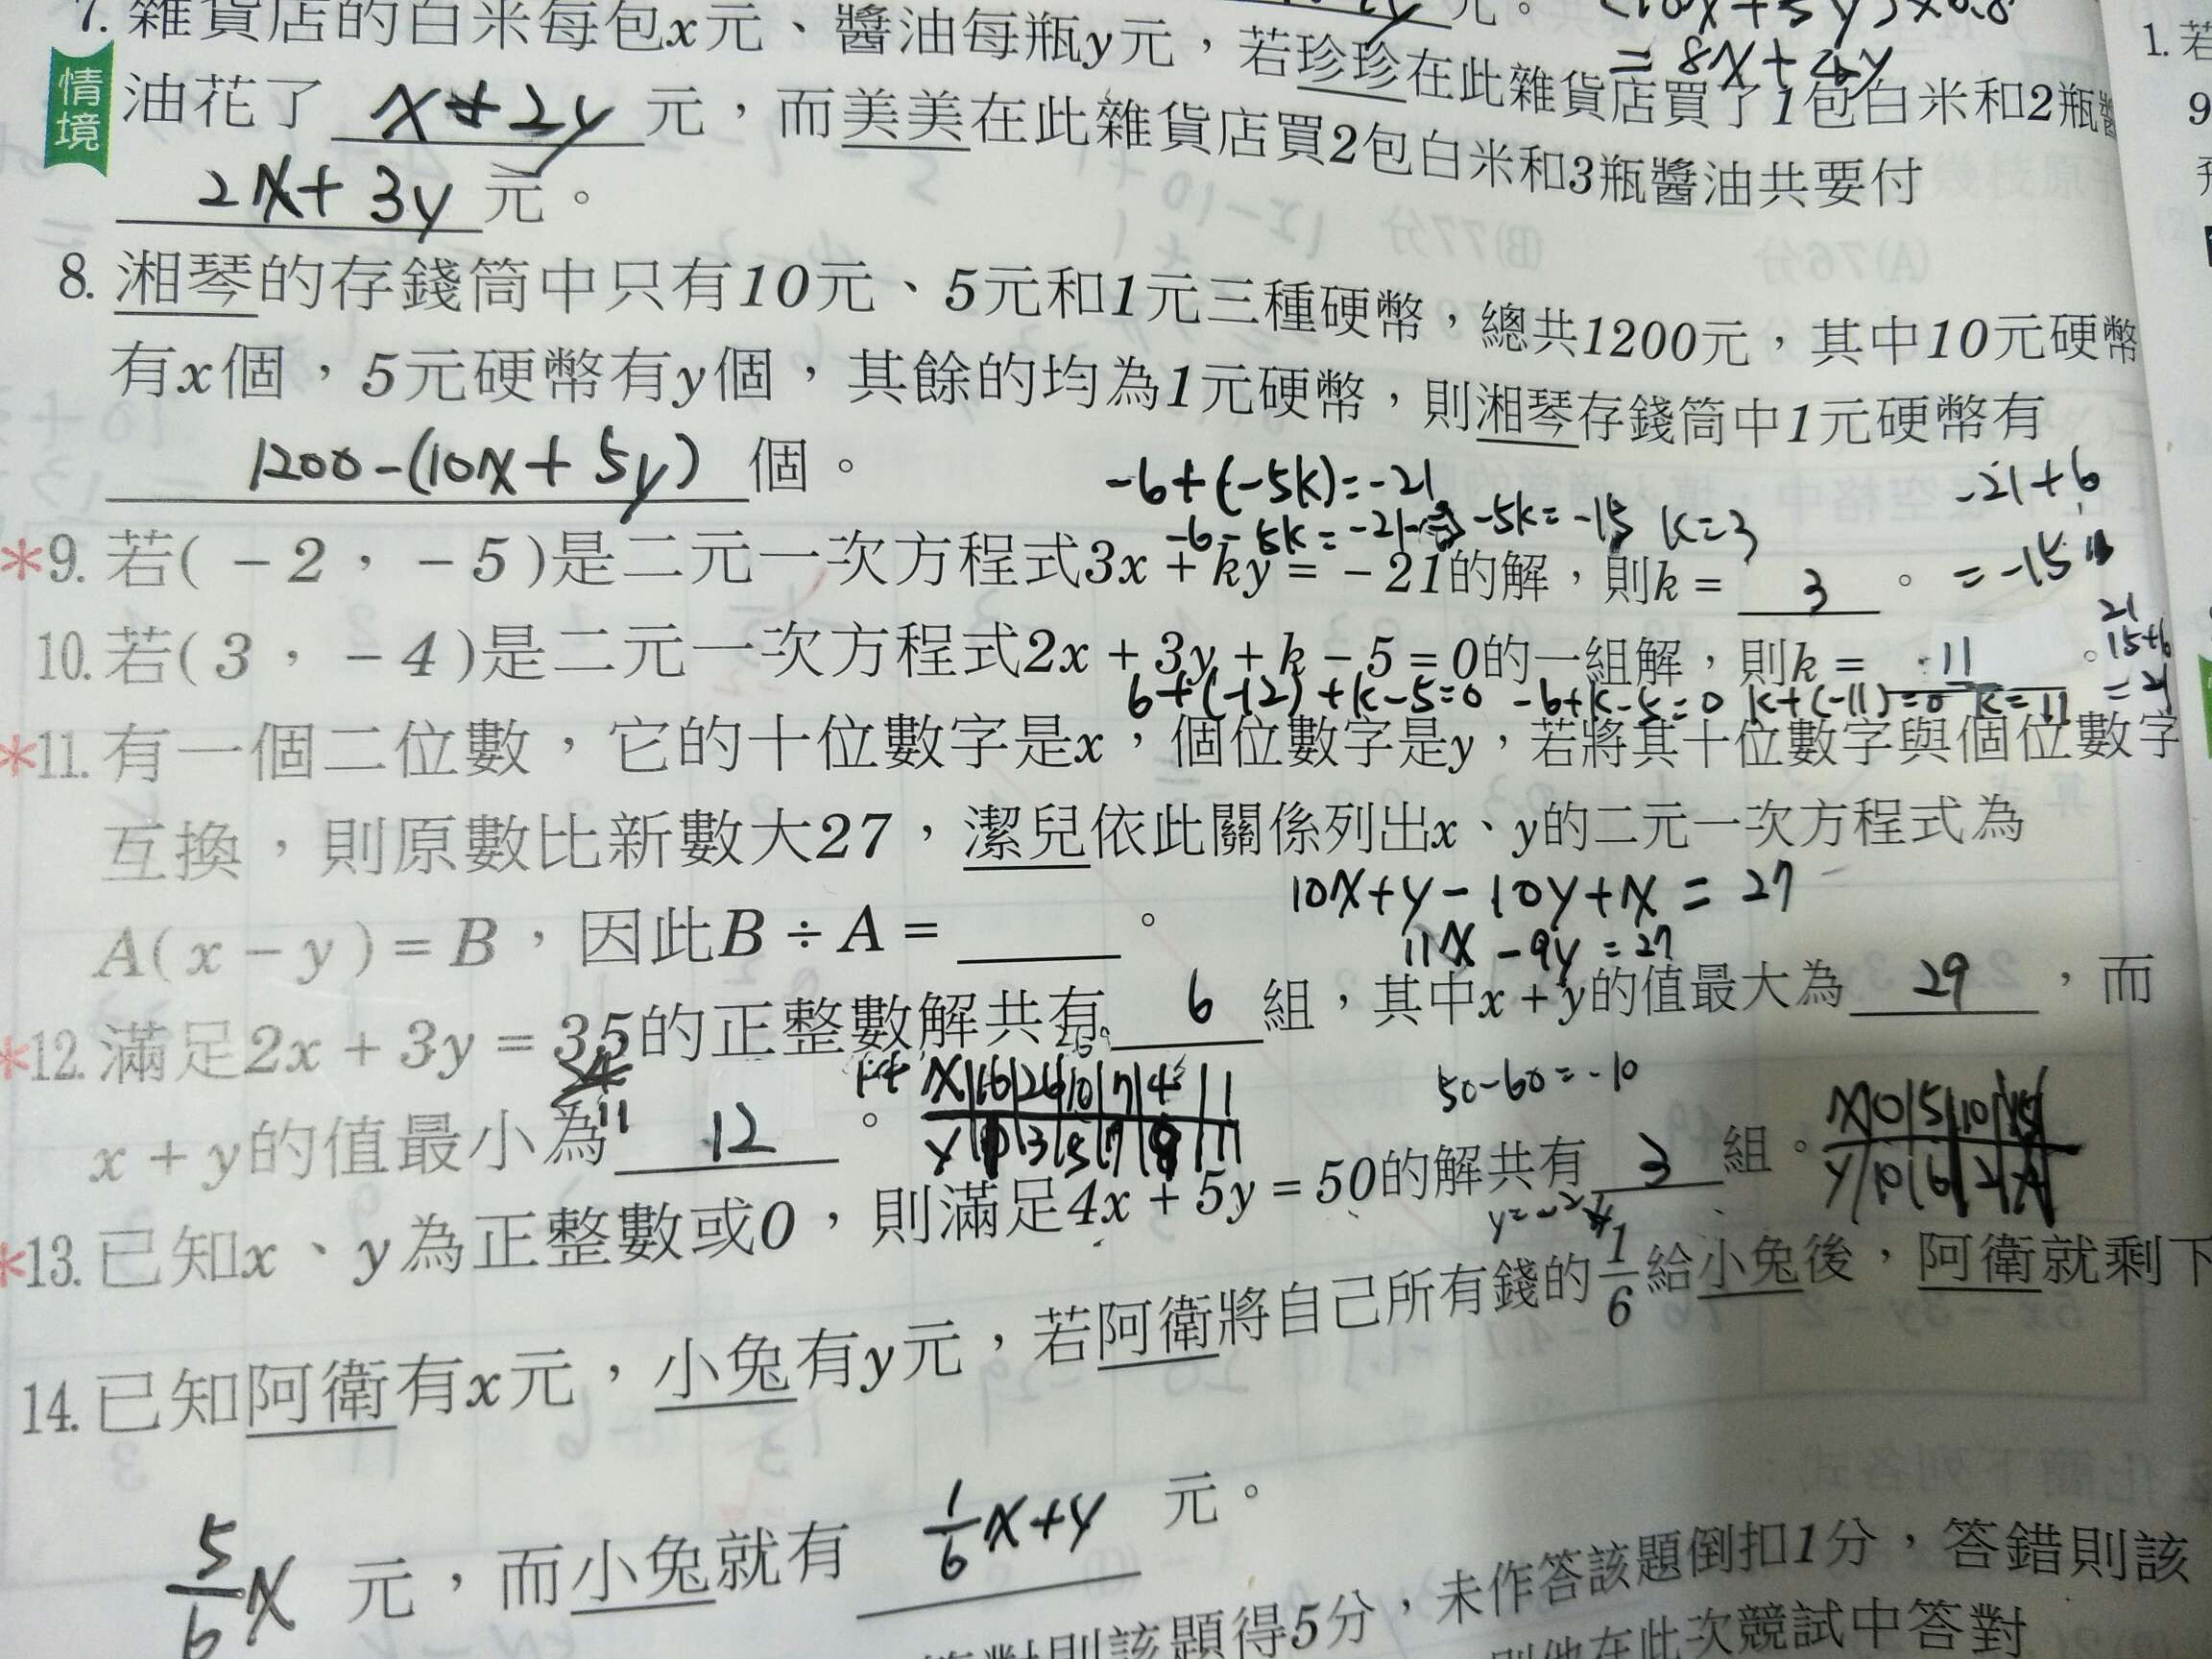 元。 (10x+5y)×0.8
= 8x+4y
7. 雜貨店的白米每包x元、醬油每瓶y元，若珍珍在此雜貨店買了1包白米和2瓶醬
情境
油花了 x+2y 元，而美美在此雜貨店買2包白米和3瓶醬油共要付
2x+3y 元。
8. 湘琴的存錢筒中只有10元、5元和1元三種硬幣，總共1200元，其中10元硬幣
有x個，5元硬幣有y個，其餘的均為1元硬幣，則湘琴存錢筒中1元硬幣有
1200-(10x+5y) 個。
-6+(-5k)=-21
-6-5k=-21 -5k=-15 k=3
-21+6
=-15
*9. 若(-2，-5)是二元一次方程式3x+ky=-21的解，則k= 3 。
10. 若(3，-4)是二元一次方程式2x+3y+k-5=0的一組解，則k= 11 。
6+(-12)+k-5=0 -6+k-5=0 k+(-11)=0 k=11
21
15+6
=21
*11. 有一個二位數，它的十位數字是x，個位數字是y，若將其十位數字與個位數字
互換，則原數比新數大27，潔兒依此關係列出x、y的二元一次方程式為
A(x-y)=B，因此B÷A= 。
10x+y-10y+x=27
11x-9y=27
*12. 滿足2x+3y=35的正整數解共有 6 組，其中x+y的值最大為 29 ，而
x+y的值最小為 12 。
50-60=-10
*13. 已知x、y為正整數或0，則滿足4x+5y=50的解共有 3 組。
14. 已知阿衛有x元，小兔有y元，若阿衛將自己所有錢的1/6給小兔後，阿衛就剩下
5/6x 元，而小兔就有 1/6x+y 元。
答對則該題得5分，未作答該題倒扣1分，答錯則該
則他在此次競試中答對
1. 若
9